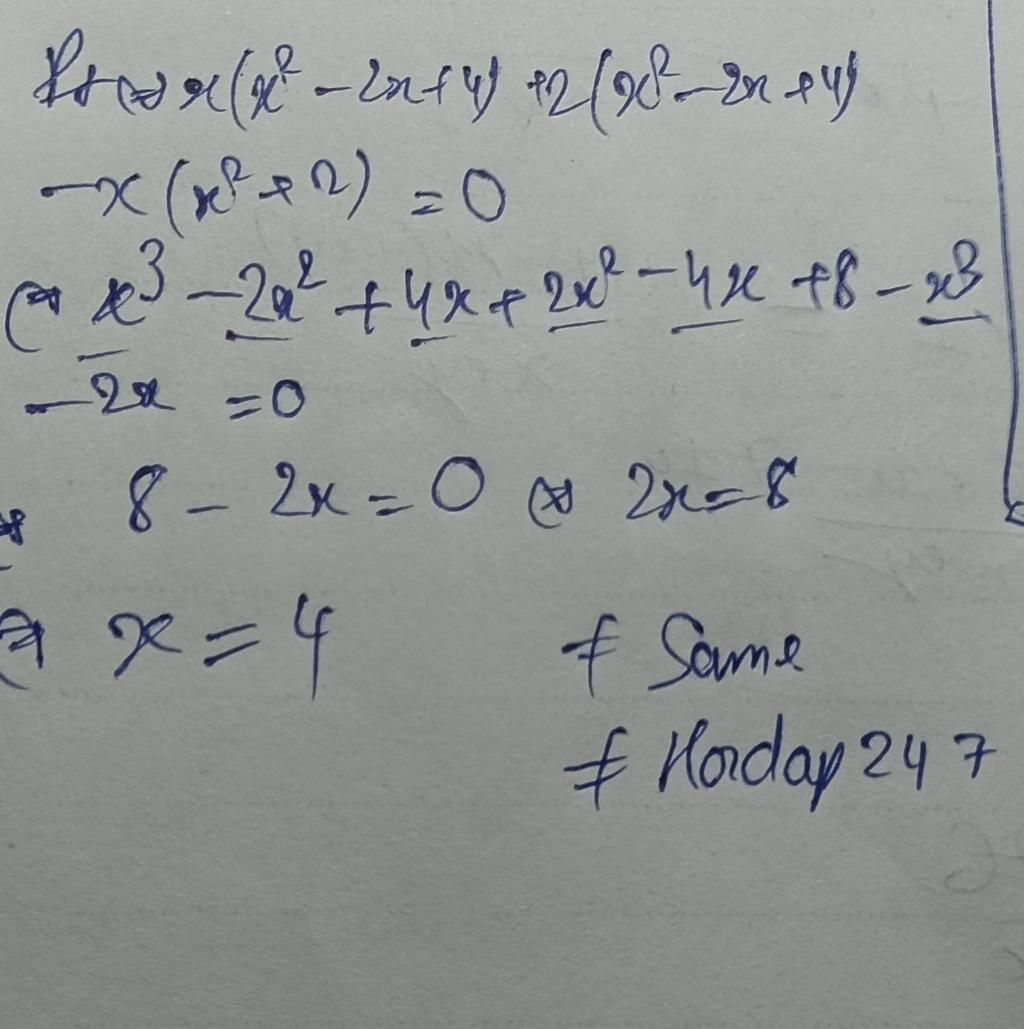 Pt ⇔ x(x² - 2x + 4) + 2(x² - 2x + 4)
- x (x² + 2) = 0
⇔ x³ - 2x² + 4x + 2x² - 4x + 8 - x³
- 2x = 0
⇔ 8 - 2x = 0 ⇔ 2x = 8
⇔ x = 4
# Same
# Horday247